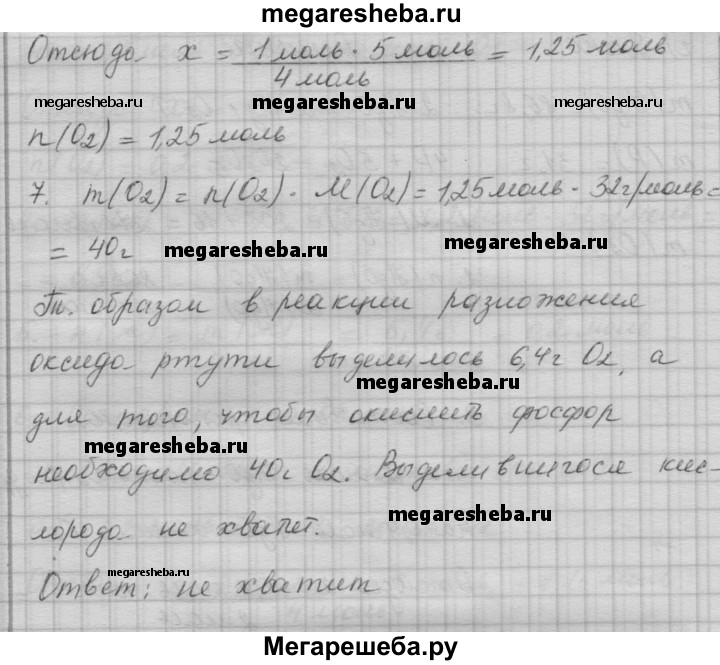 megaresheba.ru
Отсюда x = 1 моль · 5 моль / 4 моль = 1,25 моль
megaresheba.ru megaresheba.ru megaresheba.ru
n(O2) = 1,25 моль
7. m(O2) = n(O2) · M(O2) = 1,25 моль · 32 г/моль =
= 40 г megaresheba.ru megaresheba.ru
Т. образом в реакции разложения
оксида ртути выделилось 6,4 г O2, а
megaresheba.ru
для того, чтобы окислить фосфор
megaresheba.ru
необходимо 40 г O2. Выделившегося кис-
лорода не хватит. megaresheba.ru
megaresheba.ru
Ответ: не хватит
Мегарешеба.ру